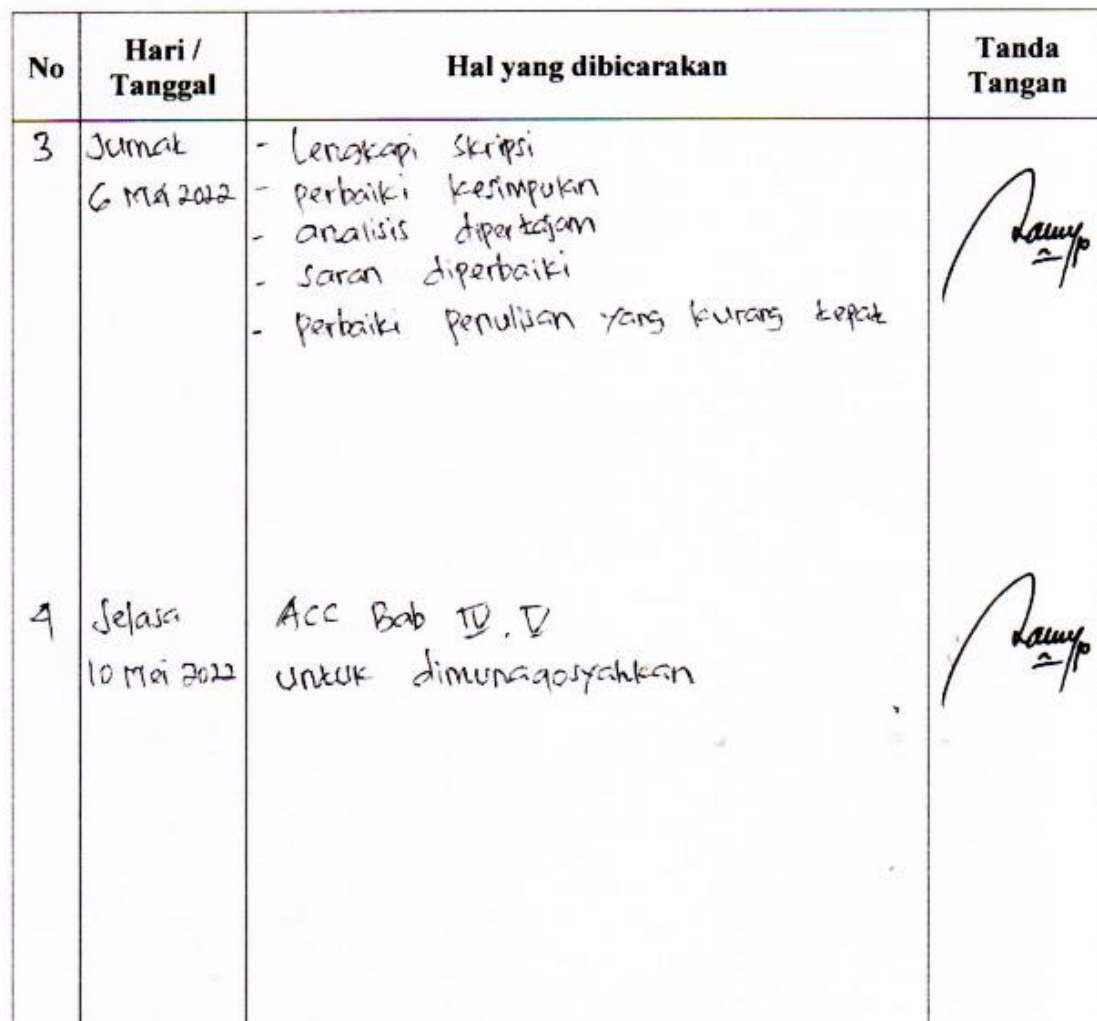 No
Hari /
Tanggal
Hal yang dibicarakan
Tanda
Tangan
3
Jumat
6 Mei 2022
- Lengkapi skripsi
- perbaiki kesimpulan
- analisis dipertajam
- saran diperbaiki
- perbaiki penulisan yang kurang tepat
4
Selasa
10 Mei 2022
Acc Bab IV, V
untuk dimunaqosyahkan